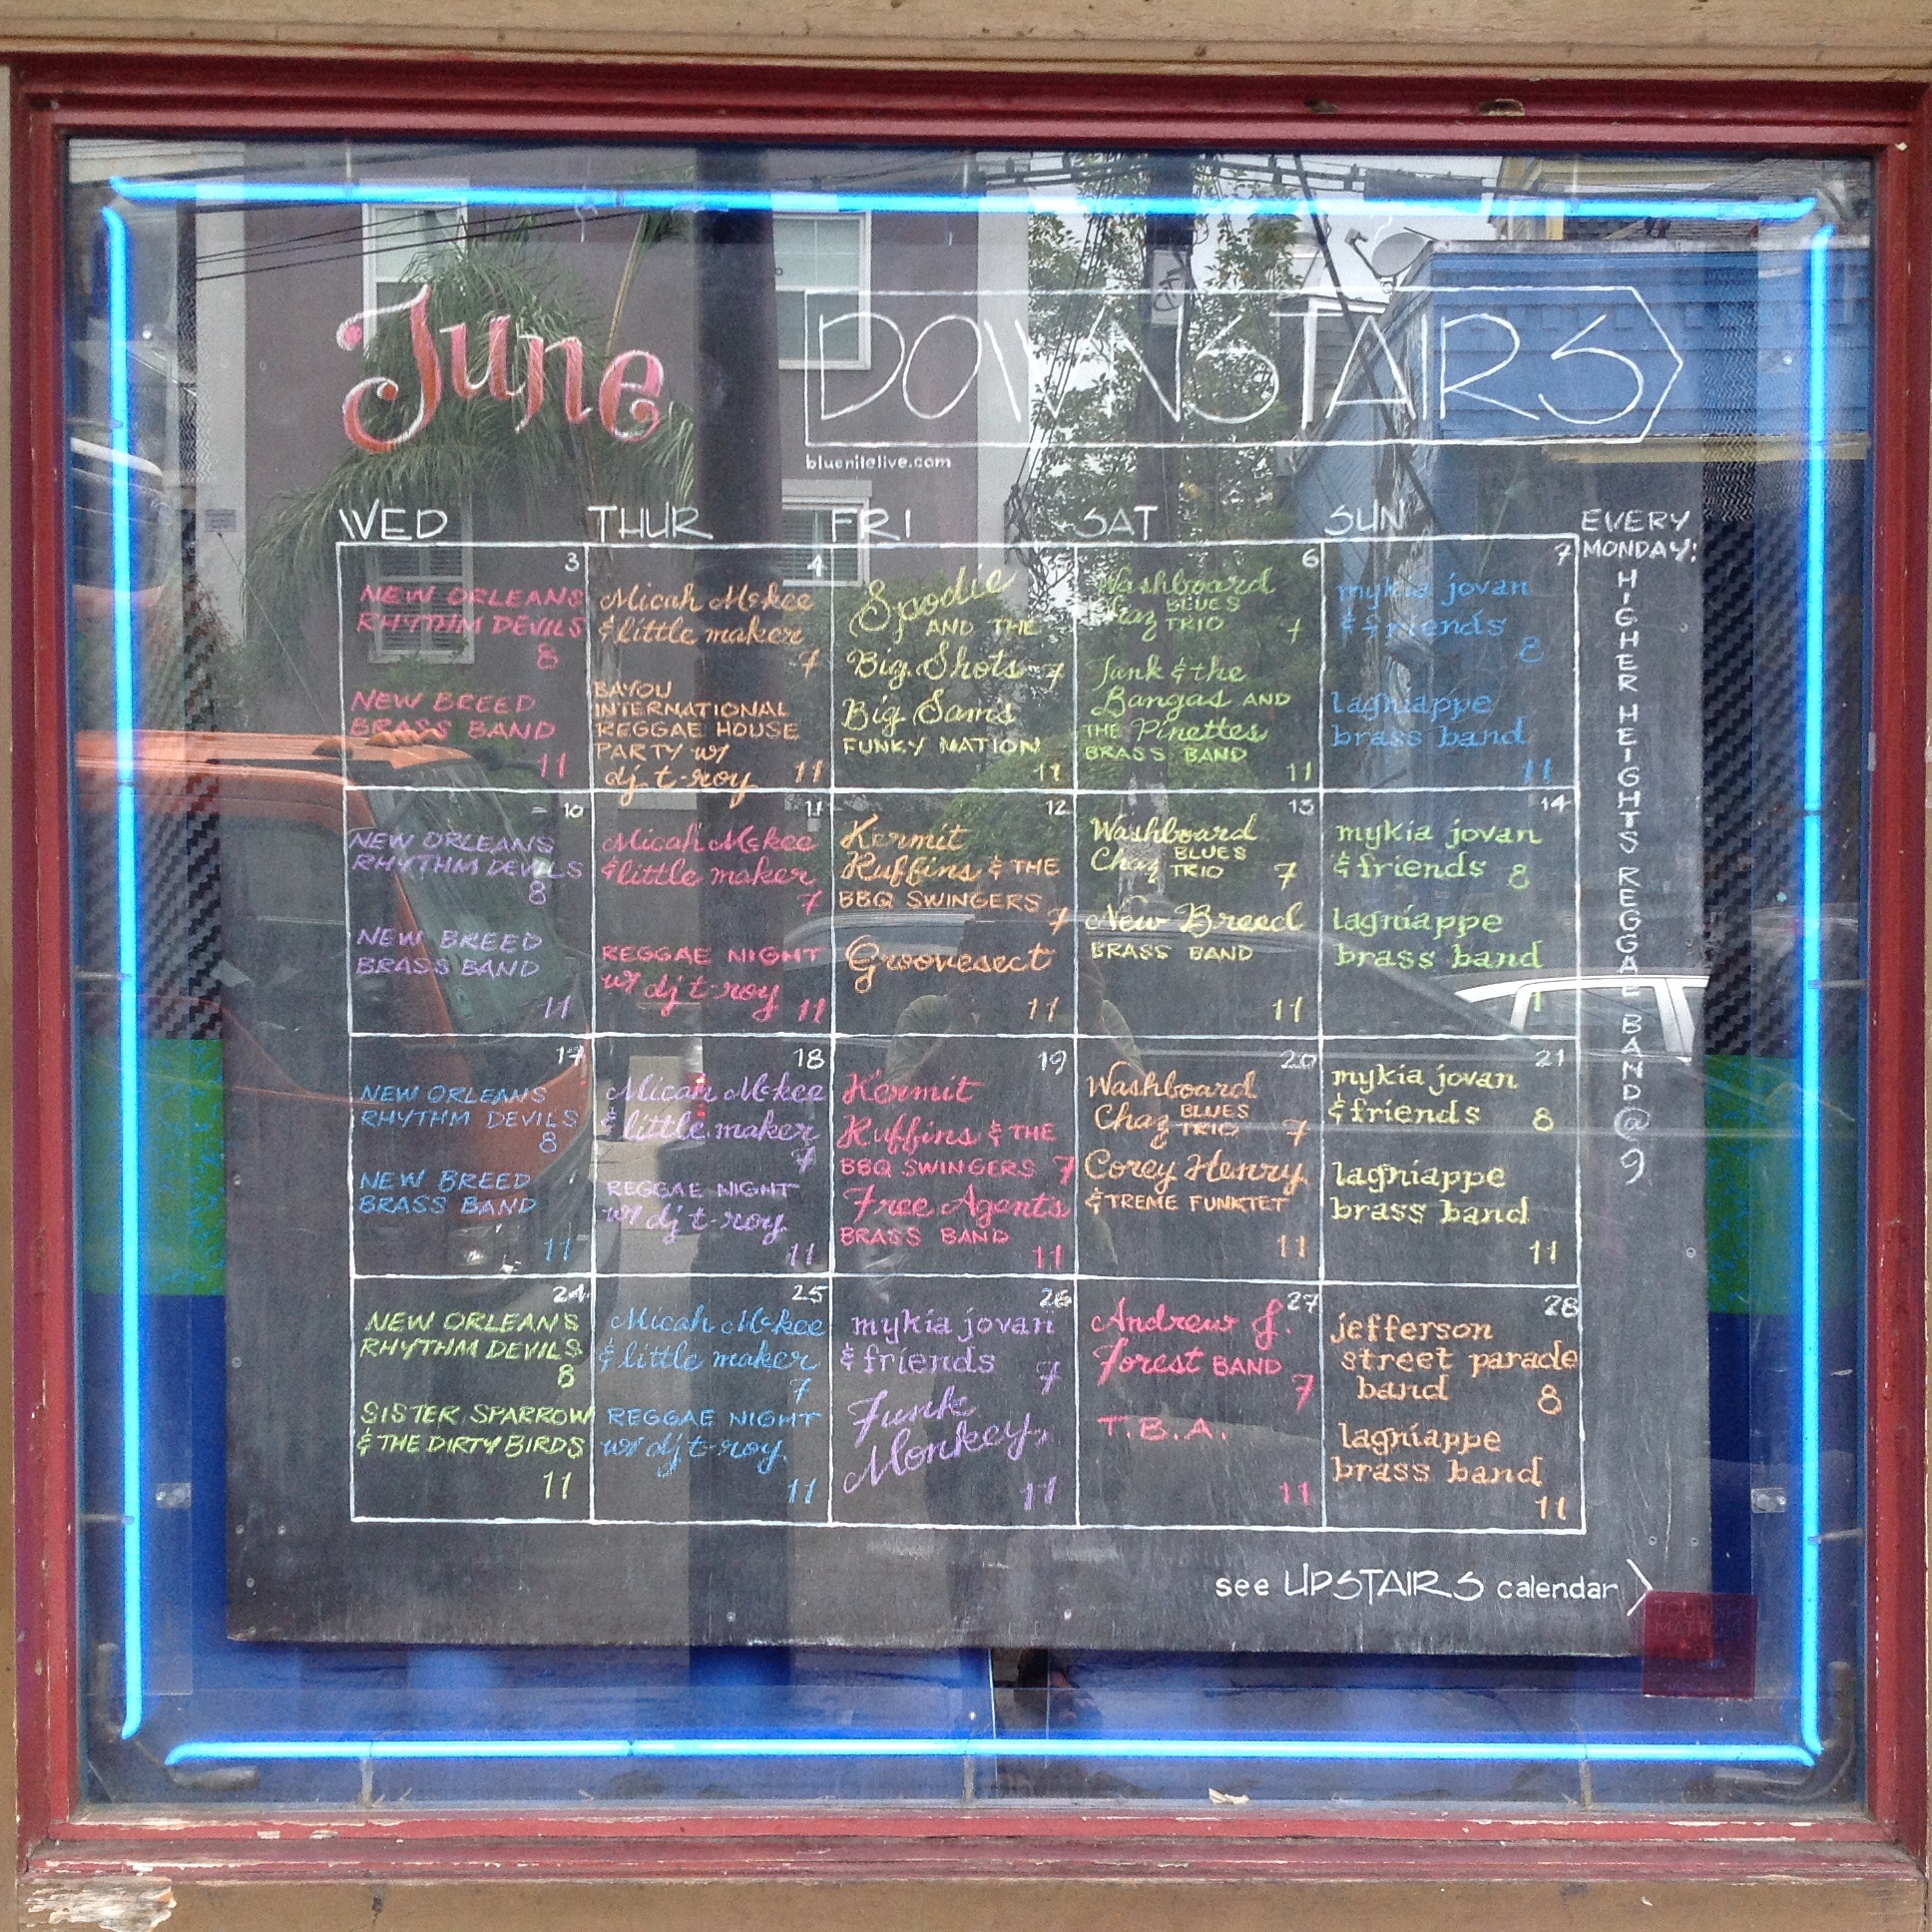 June
DOWNSTAIRS
bluenilelive.com
WED THUR FRI SAT SUN
EVERY
MONDAY:
HIGHER HEIGHTS REGGAE BAND @ 9
3
NEW ORLEANS
RHYTHM DEVILS
8
NEW BREED
BRASS BAND
11
4
Micah McKee
& little maker
7
BAYOU
INTERNATIONAL
REGGAE HOUSE
PARTY w/
dj t-roy 11
5
Spodie
AND THE
Big Shots 7
Big Sam's
FUNKY NATION
11
6
Washboard
Chaz BLUES
TRIO 7
Tank & the
Bangas AND
THE Pinettes
BRASS BAND
11
7
mykia jovan
& friends
8
lagniappe
brass band
11
10
NEW ORLEANS
RHYTHM DEVILS
8
NEW BREED
BRASS BAND
11
11
Micah McKee
& little maker
7
REGGAE NIGHT
w/ dj t-roy 11
12
Kermit
Ruffins & THE
BBQ SWINGERS 7
Groovesect
11
13
Washboard
Chaz BLUES
TRIO 7
New Breed
BRASS BAND
11
14
mykia jovan
& friends 8
lagniappe
brass band
17
NEW ORLEANS
RHYTHM DEVILS
8
NEW BREED
BRASS BAND
11
18
Micah McKee
& little maker
7
REGGAE NIGHT
w/ dj t-roy
11
19
Kermit
Ruffins & THE
BBQ SWINGERS 7
Free Agents
BRASS BAND
11
20
Washboard
Chaz BLUES
TRIO 7
Corey Henry
& TREME FUNKTET
11
21
mykia jovan
& friends 8
lagniappe
brass band
11
24
NEW ORLEANS
RHYTHM DEVILS
8
SISTER SPARROW
& THE DIRTY BIRDS
11
25
Micah McKee
& little maker
7
REGGAE NIGHT
w/ dj t-roy
11
26
mykia jovan
& friends 7
Funk
Monkey
11
27
Andrew J.
Forest BAND
7
T.B.A.
11
28
jefferson
street parade
band 8
lagniappe
brass band
11
see UPSTAIRS calendar